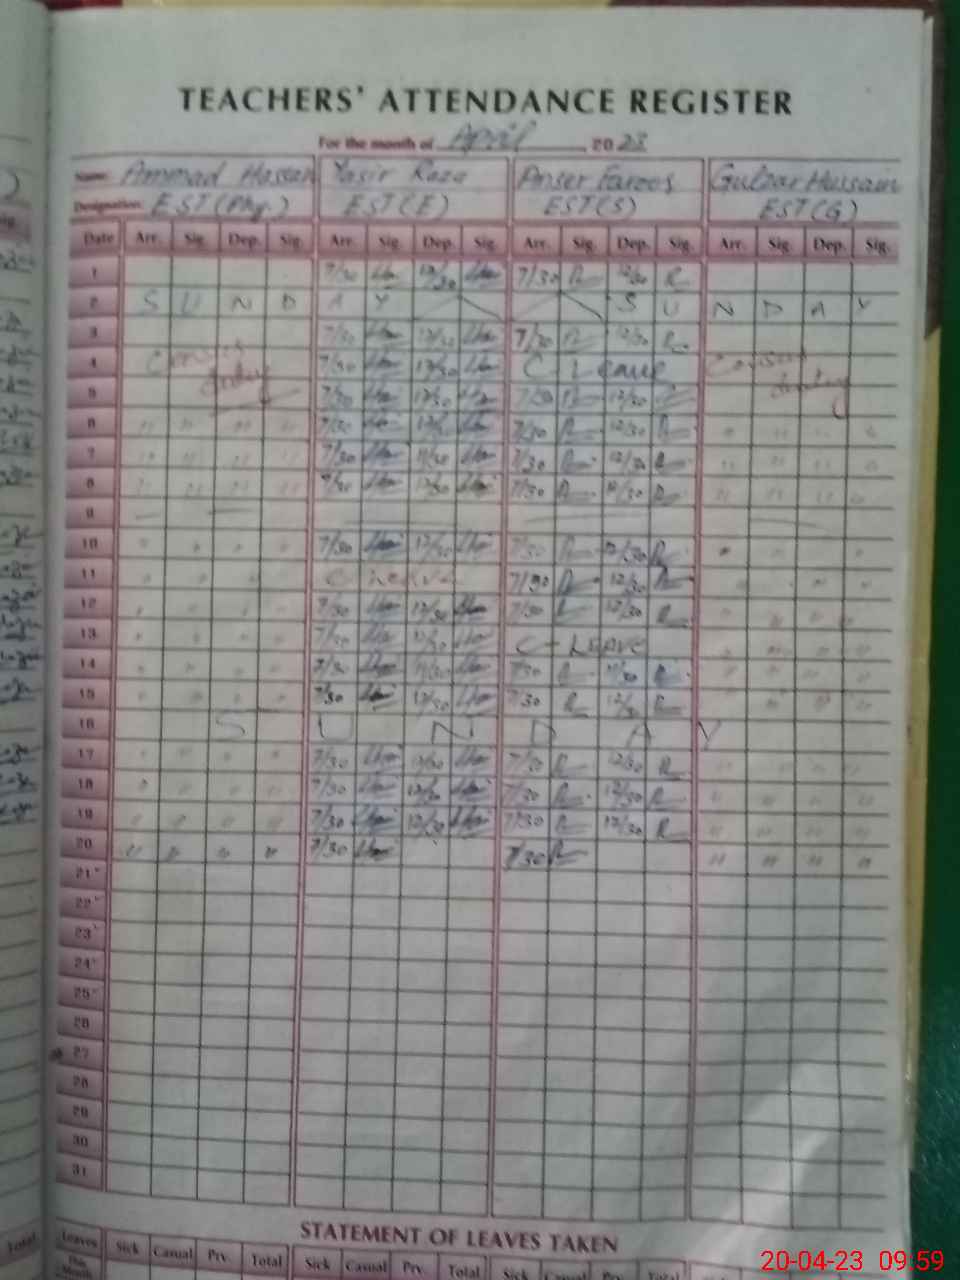 TEACHERS' ATTENDANCE REGISTER
For the month of April 2023
Name: Ammad Hassan Yasir Raza Anser Farooq Gulzar Hussain
Designation: EST(Phy.) EST(E) EST(S) EST(G)
Date Arr. Sig. Dep. Sig. Arr. Sig. Dep. Sig. Arr. Sig. Dep. Sig. Arr. Sig. Dep. Sig.
1 7/30 12/30 7/30 12/30
2 S U N D A Y S U N D A Y
3 7/30 12/30 7/30 12/30
4 Census duty 7/30 12/30 C-Leave Census duty
5 7/30 12/30 7/30 12/30
6 " " " " 7/30 12/30 7/30 12/30 " " " "
7 " " " " 7/30 12/30 7/30 12/30 " " " "
8 " " " " 7/30 12/30 7/30 12/30 " " " "
9
10 " " " " 7/30 12/30 7/30 12/30 " " " "
11 " " " " C-Leave 7/30 12/30 " " " "
12 " " " " 7/30 12/30 7/30 12/30 " " " "
13 " " " " 7/30 12/30 C-Leave " " " "
14 " " " " 7/30 12/30 7/30 12/30 " " " "
15 " " " " 7/30 12/30 7/30 12/30 " " " "
16 S U N D A Y
17 " " " " 7/30 12/30 7/30 12/30 " " " "
18 " " " " 7/30 12/30 7/30 12/30 " " " "
19 " " " " 7/30 12/30 7/30 12/30 " " " "
20 " " " " 7/30 7/30 " " " "
21
22
23
24
25
26
27
28
29
30
31
STATEMENT OF LEAVES TAKEN
Leaves Sick Casual Prv. Total Sick Casual Prv. Total Sick Casual Prv. Total
This Month
Total
20-04-23 09:59